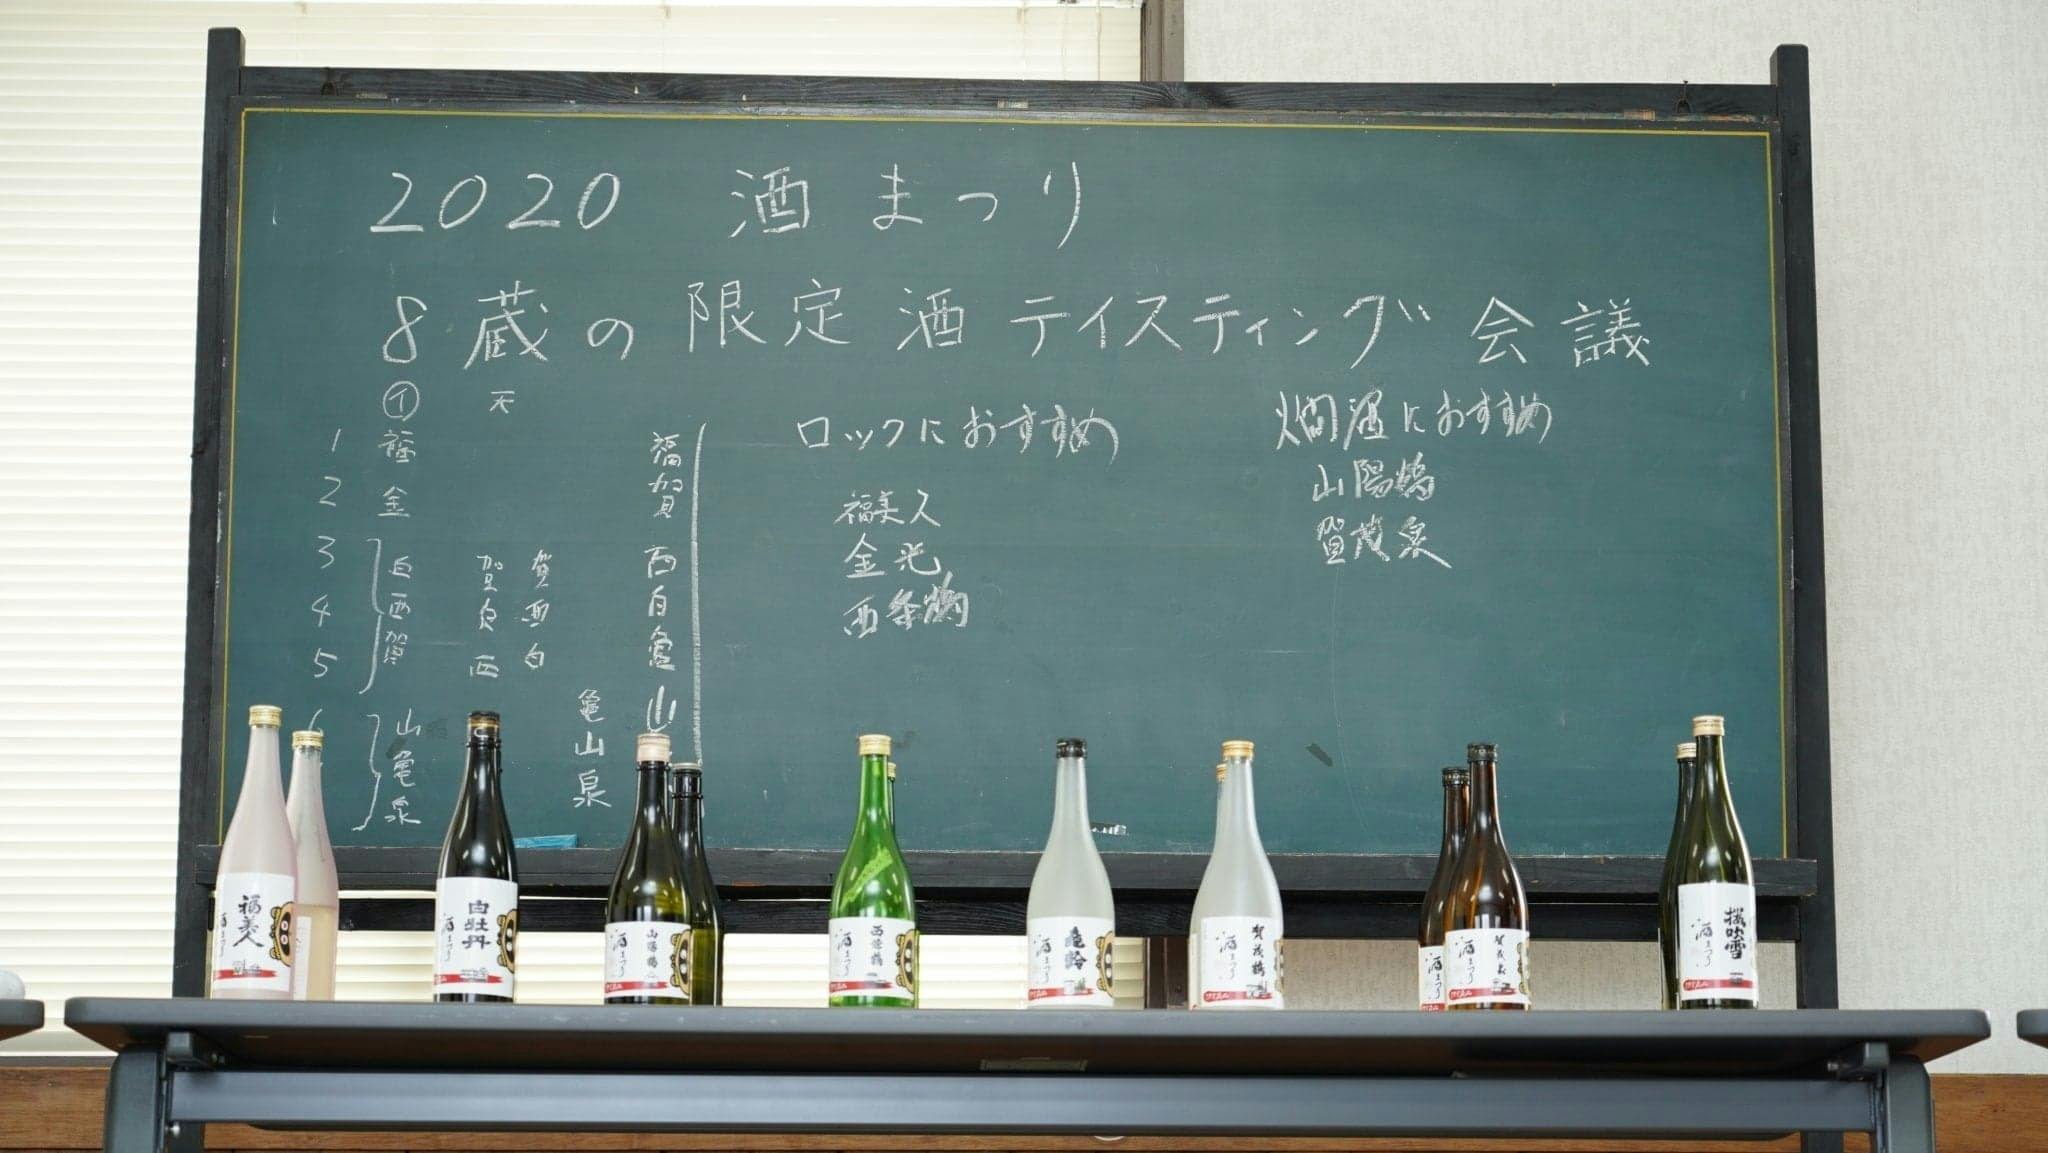 2020 酒まつり
8蔵の限定酒テイスティング会議
イ 天
1 福
2 金
3 白
4 西
5 賀
山
亀
泉
賀
西
白
亀
山
泉
福
賀
西
白
亀
山
ロックにおすすめ
福美人
金光
西条鶴
燗酒におすすめ
山陽鶴
賀茂泉
福美人
酒まつり
白牡丹
酒まつり
山陽鶴
酒まつり
西條鶴
酒まつり
亀齢
酒まつり
賀茂鶴
酒まつり
酒まつり
賀茂泉
酒まつり
桜吹雪
酒まつり